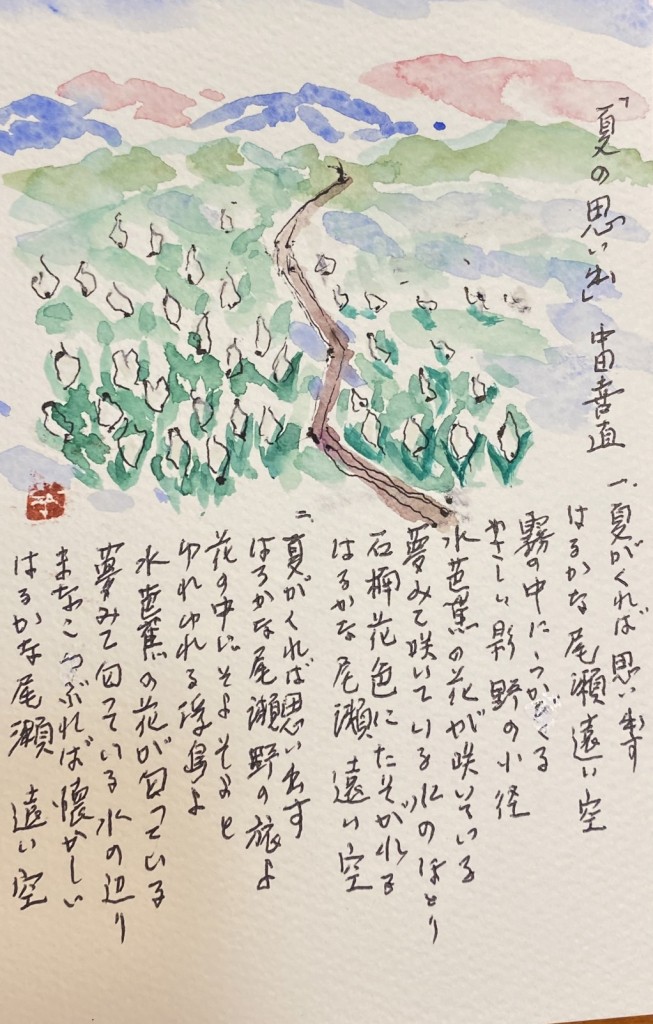 「夏の思い出」 中田喜直
一、夏がくれば思い出す
はるかな尾瀬 遠い空
霧の中にうかびくる
やさしい影 野の小径
水芭蕉の花が咲いている
夢みて咲いている水のほとり
石楠花色にたそがれる
はるかな尾瀬 遠い空
二、夏がくれば思い出す
はるかな尾瀬 野の旅よ
花の中にそよそよと
ゆれゆれる浮島よ
水芭蕉の花が匂っている
夢みて匂っている水の辺り
まなこつぶれば懐かしい
はるかな尾瀬 遠い空